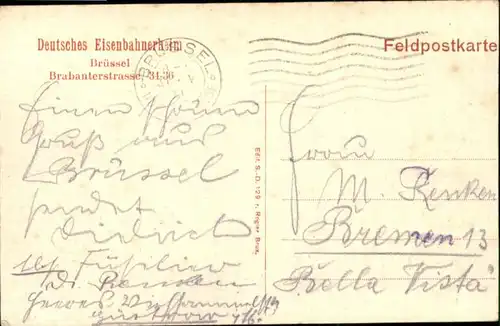 Deutsches Eisenbahnerheim
Brüssel
Brabanterstrasse 34-36
BRÜSSEL
Feldpostkarte
Einen schönen
Gruß aus
Brüssel
sendet
Diedrich
Füsilier
Edit. S.-D. 129 r. Rogier Brux.
Frau
M. Renken
Bremen 13
"Bella Vista"